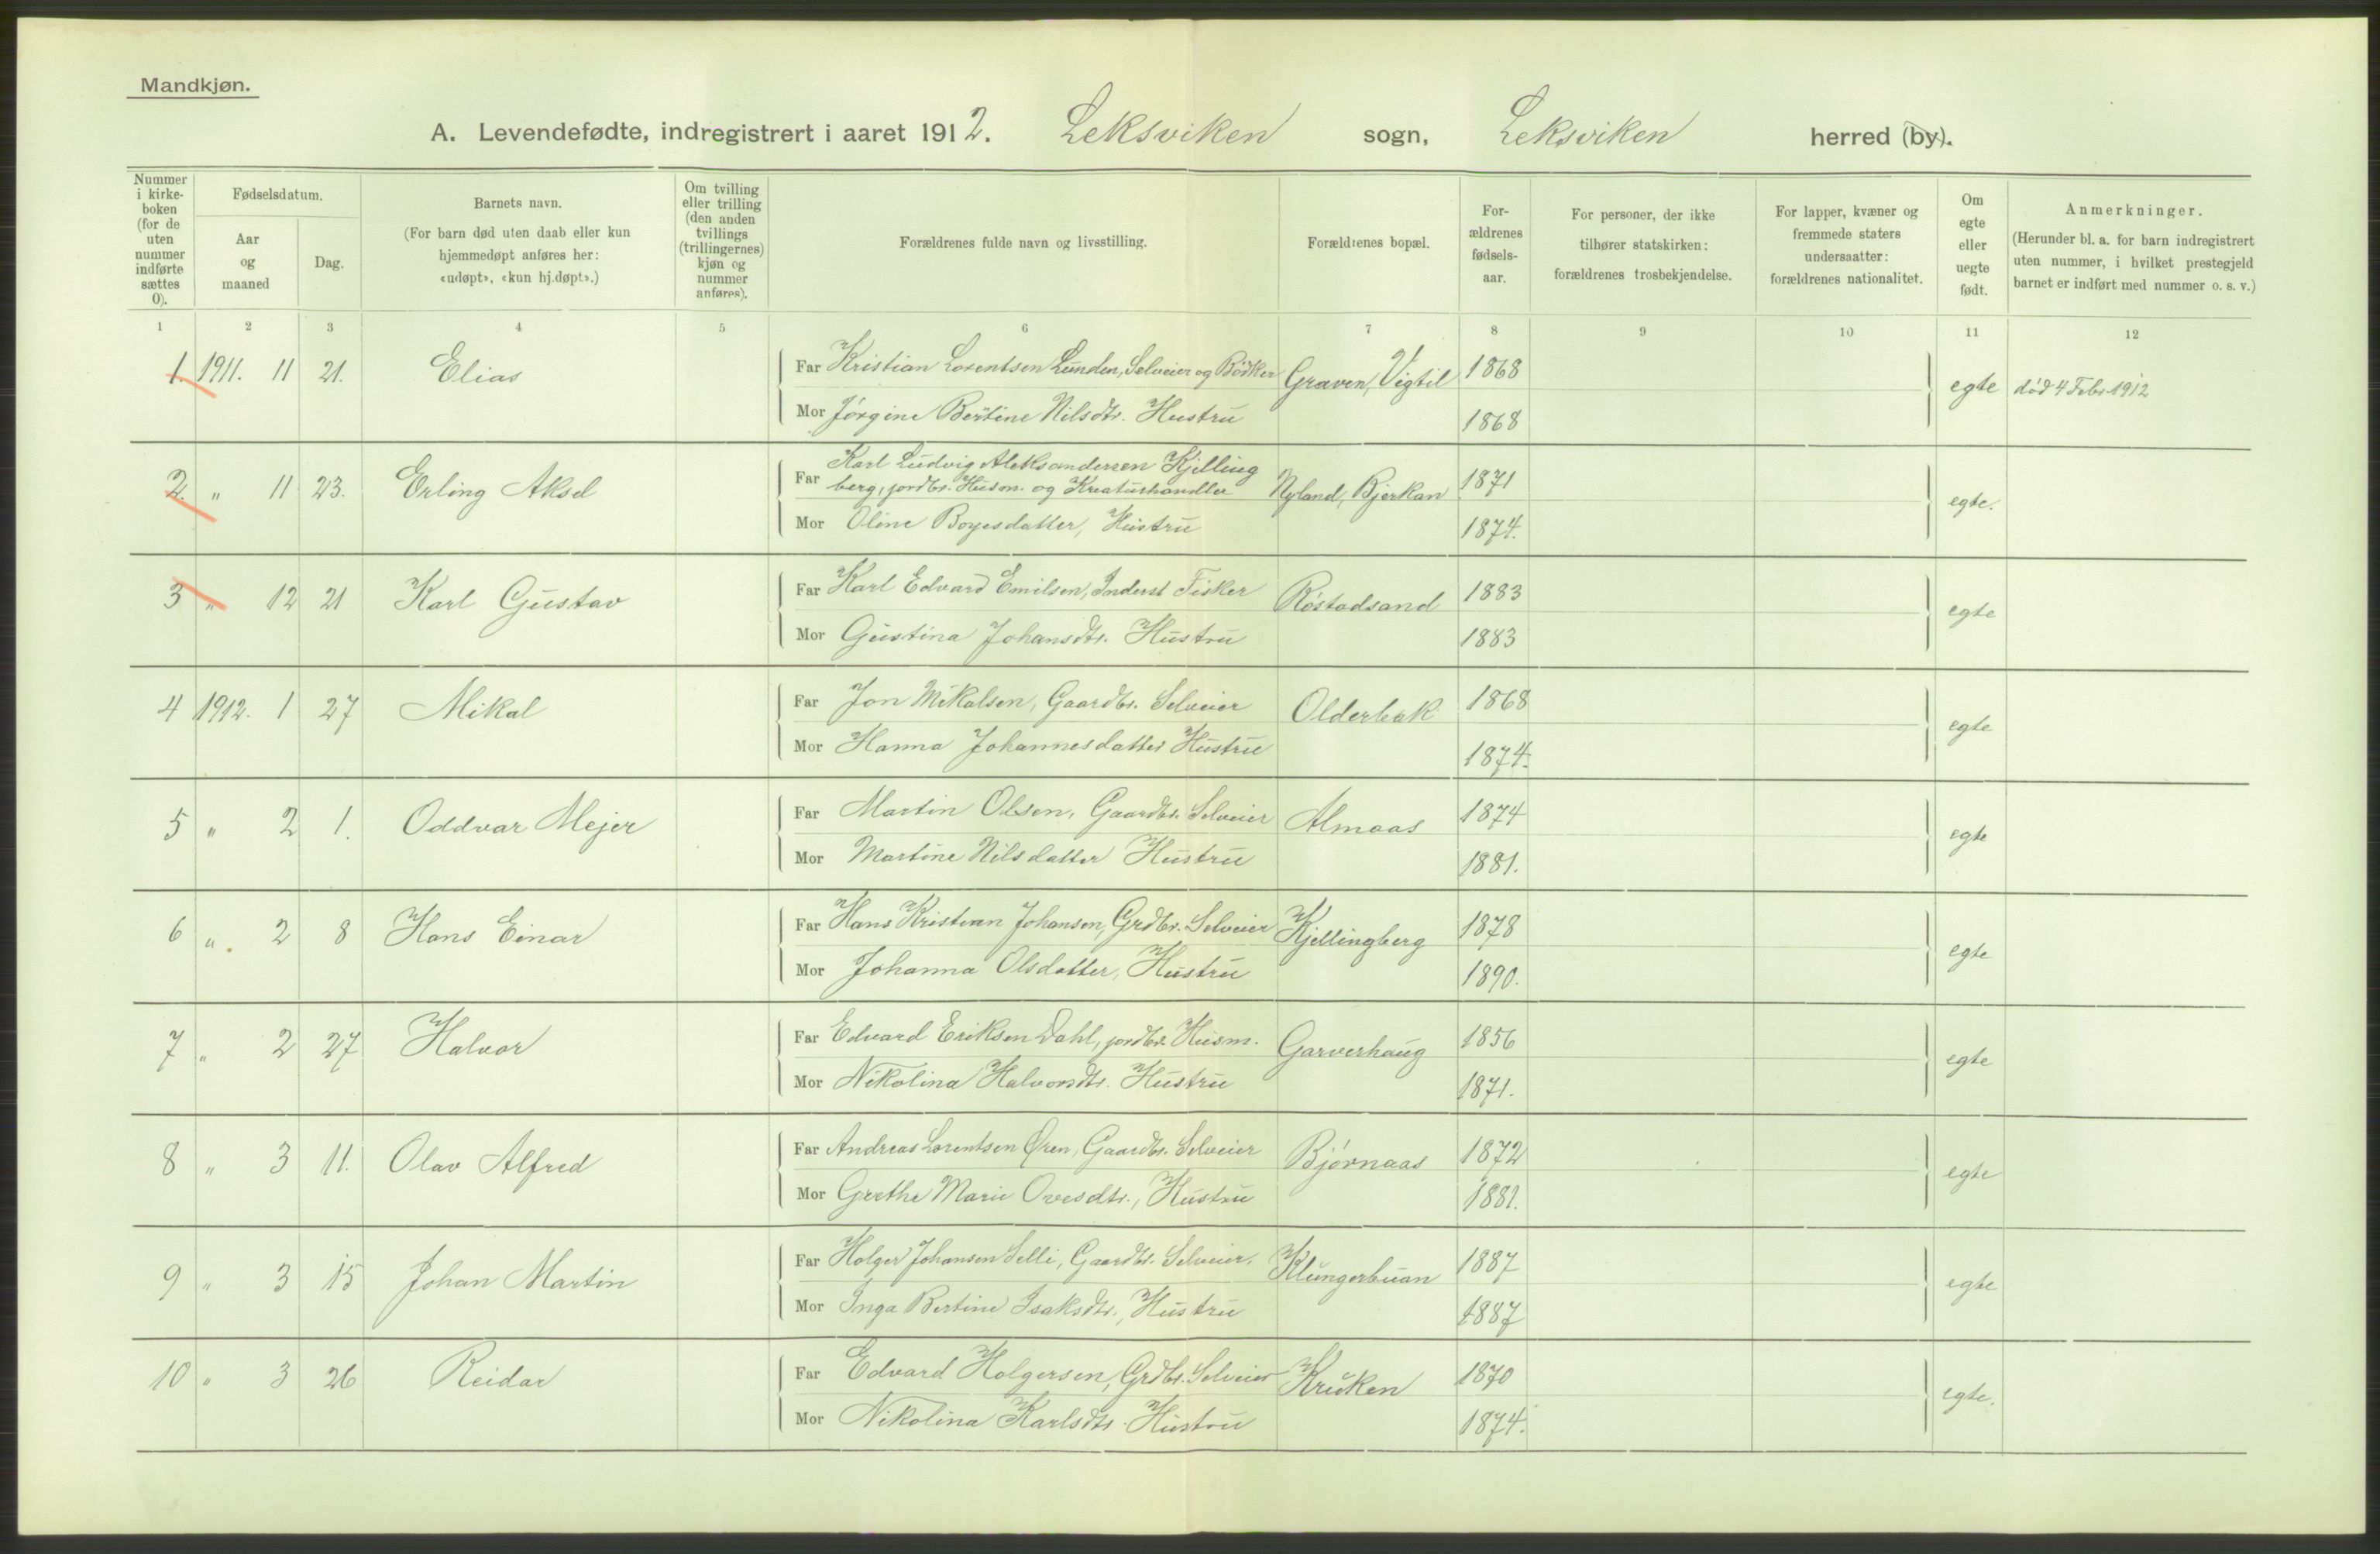 Mandkjøn.
A. Levendefødte, indregistrert i aaret 1912. Leksviken sogn, Leksviken herred (by).
Nummer i kirkeboken (for de uten nummer indførte sættes 0).
Fødselsdatum.
Aar og maaned
Dag.
Barnets navn.
(For barn død uten daab eller kun hjemmedøpt anføres her: «udøpt», «kun hj.døpt».)
Om tvilling eller trilling (den anden tvillings (trillingernes) kjøn og nummer anføres).
Forældrenes fulde navn og livsstilling.
Forældrenes bopæl.
Forældrenes fødselsaar.
For personer, der ikke tilhører statskirken: forældrenes trosbekjendelse.
For lapper, kvæner og fremmede staters undersaatter: forældrenes nationalitet.
Om egte eller uegte født.
Anmerkninger.
(Herunder bl. a. for barn indregistrert uten nummer, i hvilket prestegjeld barnet er indført med nummer o. s. v.)
1 2 3 4 5 6 7 8 9 10 11 12
1. 1911. 11 21. Elias Far Kristian Lorentsen Lunden, Selveier og Bødker Graven, Vigtil 1868 egte død 4 Febr 1912
Mor Jørgine Bertine Nilsdtr. Hustru 1868
2. " 11 23. Erling Aksel Far Karl Ludvig Aleksandersen Kjelling
berg, jordbr. Husm. og Kreaturhandler Nyland, Bjerkan 1871 egte.
Mor Oline Boyesdatter, Hustru 1874.
3 " 12 21 Karl Gustav Far Karl Edvard Emilsen, Inderst Fisker Røstadsand 1883 egte
Mor Gustina Johansdtr. Hustru 1883
4 1912. 1 27 Mikal Far Jon Mikalsen, Gaardbr. Selveier Olderbak 1868 egte
Mor Hanna Johannesdatter Hustru 1874.
5 " 2 1. Oddvar Mejer Far Martin Olsen, Gaardbr. Selveier Almaas 1874 egte
Mor Martine Nilsdatter Hustru 1881.
6 " 2 8 Hans Einar Far Hans Kristian Johansen, Grdbr. Selveier Kjellingberg 1878 egte
Mor Johanna Olsdatter, Hustru 1890.
7 " 2 27 Halvor Far Edvard Eriksen Dahl, jordbr. Husm. Garverhaug 1856 egte
Mor Nikolina Halvorsdtr. Hustru 1871.
8 " 3 11. Olav Alfred Far Andreas Lorentsen Øren, Gaardbr. Selveier Bjørnaas 1872 egte
Mor Grethe Marie Ovesdtr., Hustru 1881.
9 " 3 15 Johan Martin Far Holger Johansen Selli, Gaardbr. Selveier. Klungerbuan 1887 egte
Mor Inga Bertine Isaksdtr., Hustru 1887
10 " 3 26 Reidar Far Edvard Holgersen, Grdbr. Selveier Kruken 1870 egte.
Mor Nikolina Karlsdtr. Hustru 1874.